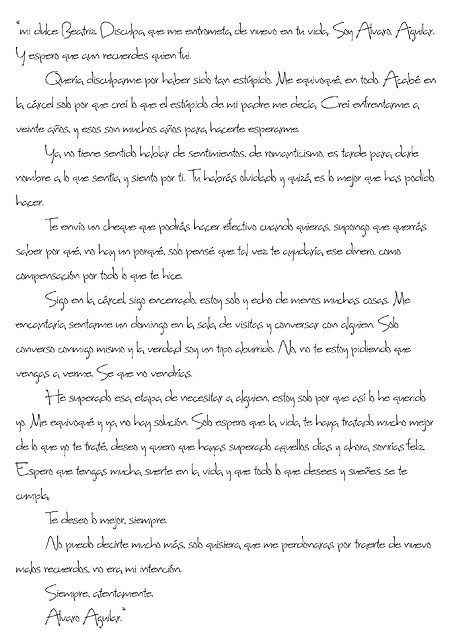 "mi dulce Beatriz. Disculpa que me entrometa de nuevo en tu vida. Soy Alvaro. Aguilar.
Y espero que aun recuerdes quien fui.
Quería disculparme por haber sido tan estúpido. Me equivoqué, en todo. Acabé en
la cárcel solo por que creí lo que el estúpido de mi padre me decía. Creí enfrentarme a
veinte años, y esos son muchos años para hacerte esperarme.
Ya no tiene sentido hablar de sentimientos, de romanticismo, es tarde para darle
nombre a lo que sentía y siento por ti. Tu habrás olvidado y quizá es lo mejor que has podido
hacer.
Te envío un cheque que podrás hacer efectivo cuando quieras, supongo que querrás
saber por qué, no hay un porqué, solo pensé que tal vez te ayudaría ese dinero, como
compensación por todo lo que te hice.
Sigo en la cárcel, sigo encerrado, estoy solo y echo de menos muchas cosas. Me
encantaría sentarme un domingo en la sala de visitas y conversar con alguien. Solo
converso conmigo mismo y la verdad soy un tipo aburrido. No, no te estoy pidiendo que
vengas a verme. Se que no vendrías.
He superado esa etapa de necesitar a alguien, estoy solo por que así lo he querido
yo. Me equivoqué y ya no hay solución. Solo espero que la vida, te haya tratado mucho mejor
de lo que yo te traté, deseo y quiero que hayas superado aquellos días y ahora sonrías feliz.
Espero que tengas mucha suerte en la vida y que todo lo que desees y sueñes se te
cumpla.
Te deseo lo mejor, siempre.
No puedo decirte mucho más, solo quisiera que me perdonaras por traerte de nuevo
malos recuerdos, no era mi intención.
Siempre, atentamente.
Alvaro Aguilar."